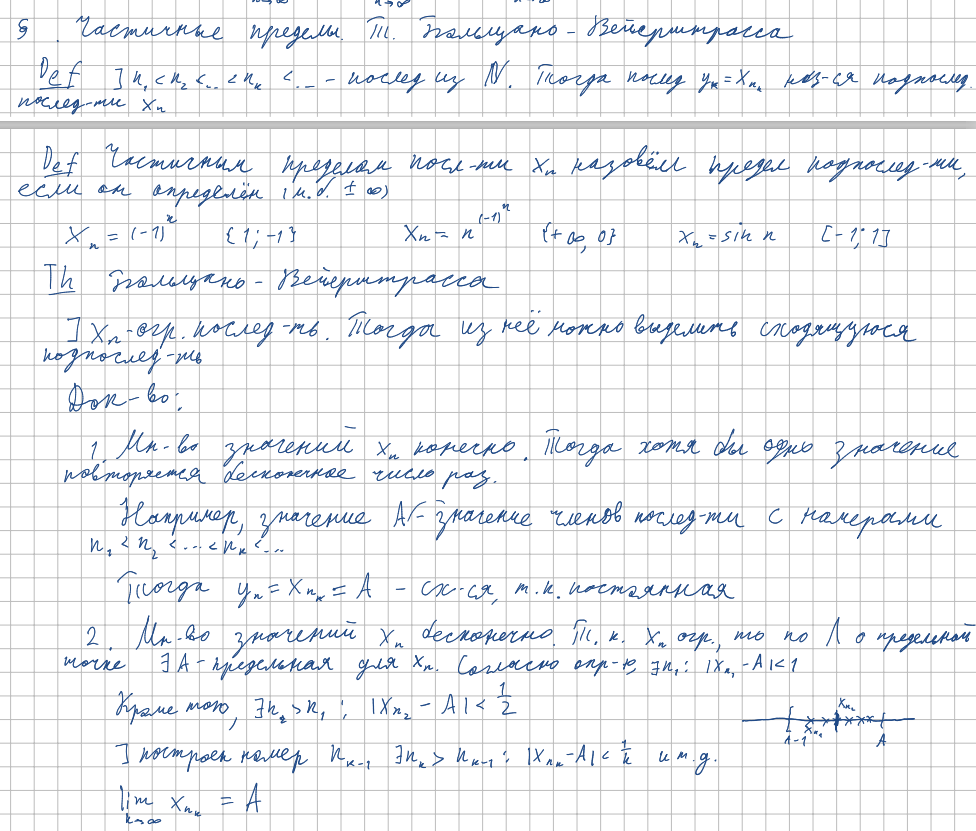 § . Частичные пределы. Т. Больцано - Вейерштрасса
Def ] n₁ < n₂ < … < nₖ < … - послед из N. Тогда послед yₖ = xₙₖ наз-ся подпослед.
послед-ти xₙ
Def Частичным пределом посл-ти xₙ назовём предел подпослед-ти,
если он определён (м.б. ± ∞)
xₙ = (-1)ⁿ {1; -1} xₙ = n^(-1)ⁿ {+∞, 0} xₙ = sin n [-1; 1]
Th Больцано - Вейерштрасса
] xₙ - огр. послед-ть. Тогда из неё можно выделить сходящуюся
подпослед-ть
Док-во:
1. Мн-во значений xₙ конечно. Тогда хотя бы одно значение
повторяется бесконечное число раз.
Например, значение A - значение членов послед-ти с номерами
n₁ < n₂ < … < nₖ < …
Тогда yₙ = xₙₖ = A - сх-ся, т.к. постоянная
2. Мн-во значений xₙ бесконечно. Т.к. xₙ огр., то по Л о предельной
точке ∃ A - предельная для xₙ. Согласно опр-ю, ∃n₁: |xₙ₁ - A| < 1
Кроме того, ∃n₂ > n₁ : |xₙ₂ - A| < 1/2
xₙ₂
xₙ₁
A-1 A
] построен номер nₖ₋₁ ∃nₖ > nₖ₋₁ : |xₙₖ - A| < 1/k и т.д.
lim xₙₖ = A
k→∞